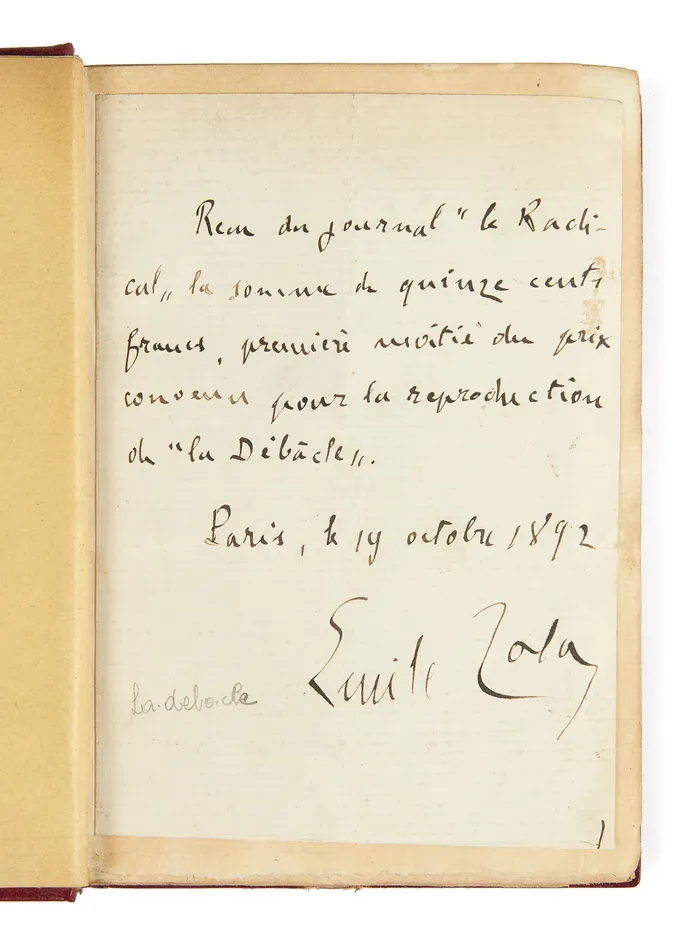 Recu du journal "le Radi-
cal„ la somme de quinze cents
francs, première moitié du prix
convenu pour la reproduction
de "la Débâcle„.
Paris, le 19 octobre 1892
Emile Zola
La debacle